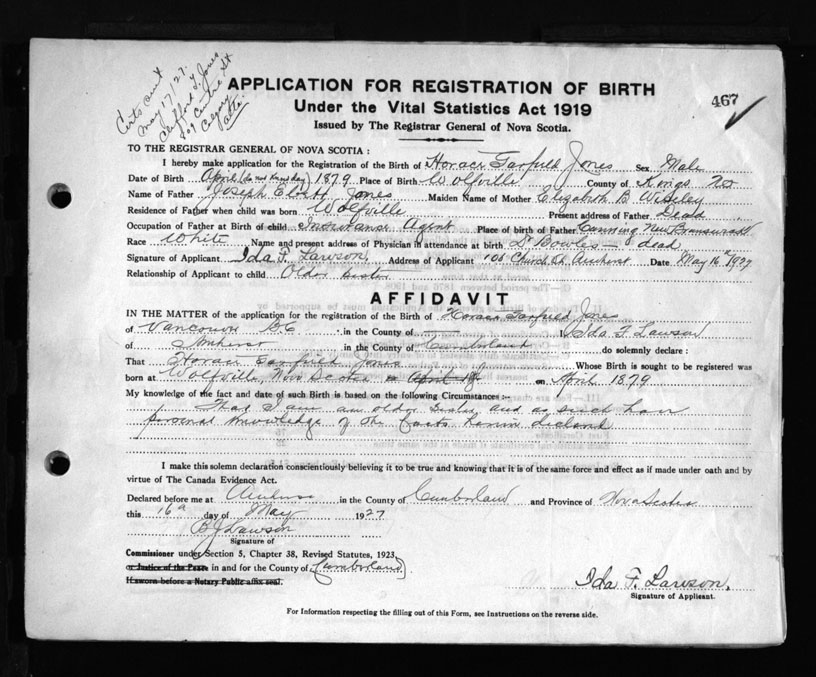 Certs sent
May 17/27.
Clifford T. Jones
Centre St
Calgary
Alta.
467
APPLICATION FOR REGISTRATION OF BIRTH
Under the Vital Statistics Act 1919
Issued by The Registrar General of Nova Scotia.
TO THE REGISTRAR GENERAL OF NOVA SCOTIA :
I hereby make application for the Registration of the Birth of Horace Garfield Jones Sex Male
Date of Birth April (do not know day) 1879 Place of Birth Wolfville County of Kings NS
Name of Father Joseph Jones Maiden Name of Mother Elizabeth B
Residence of Father when child was born Wolfville Present address of Father Dead
Occupation of Father at Birth of child Insurance Agent Place of birth of Father Canning New Brunswick
Race White Name and present address of Physician in attendance at birth Dr Bowles - dead
Signature of Applicant Ida F. Lawson, Address of Applicant 106 Church St. Amherst Date May 16th 1927
Relationship of Applicant to child Older sister
AFFIDAVIT
IN THE MATTER of the application for the registration of the Birth of Horace Garfield Jones
of Vancouver B.C. in the County of I, Ida F Lawson
of Amherst in the County of Cumberland do solemnly declare :
That Horace Garfield Jones Whose Birth is sought to be registered was
born at Wolfville, Nova Scotia on April on April 1879
My knowledge of the fact and date of such Birth is based on the following Circumstances :-
That I am an older sister and as such have
personal knowledge of the facts herein declared
I make this solemn declaration conscientiously believing it to be true and knowing that it is of the same force and effect as if made under oath and by
virtue of The Canada Evidence Act.
Declared before me at Amherst in the County of Cumberland and Province of Nova Scotia
this 16th day of May 1927
B J Lawson
Signature of
Commissioner under Section 5, Chapter 38, Revised Statutes, 1923,
or Justice of the Peace in and for the County of Cumberland
If sworn before a Notary Public affix seal.
Ida F. Lawson,
Signature of Applicant.
For Information respecting the filling out of this Form, see Instructions on the reverse side.